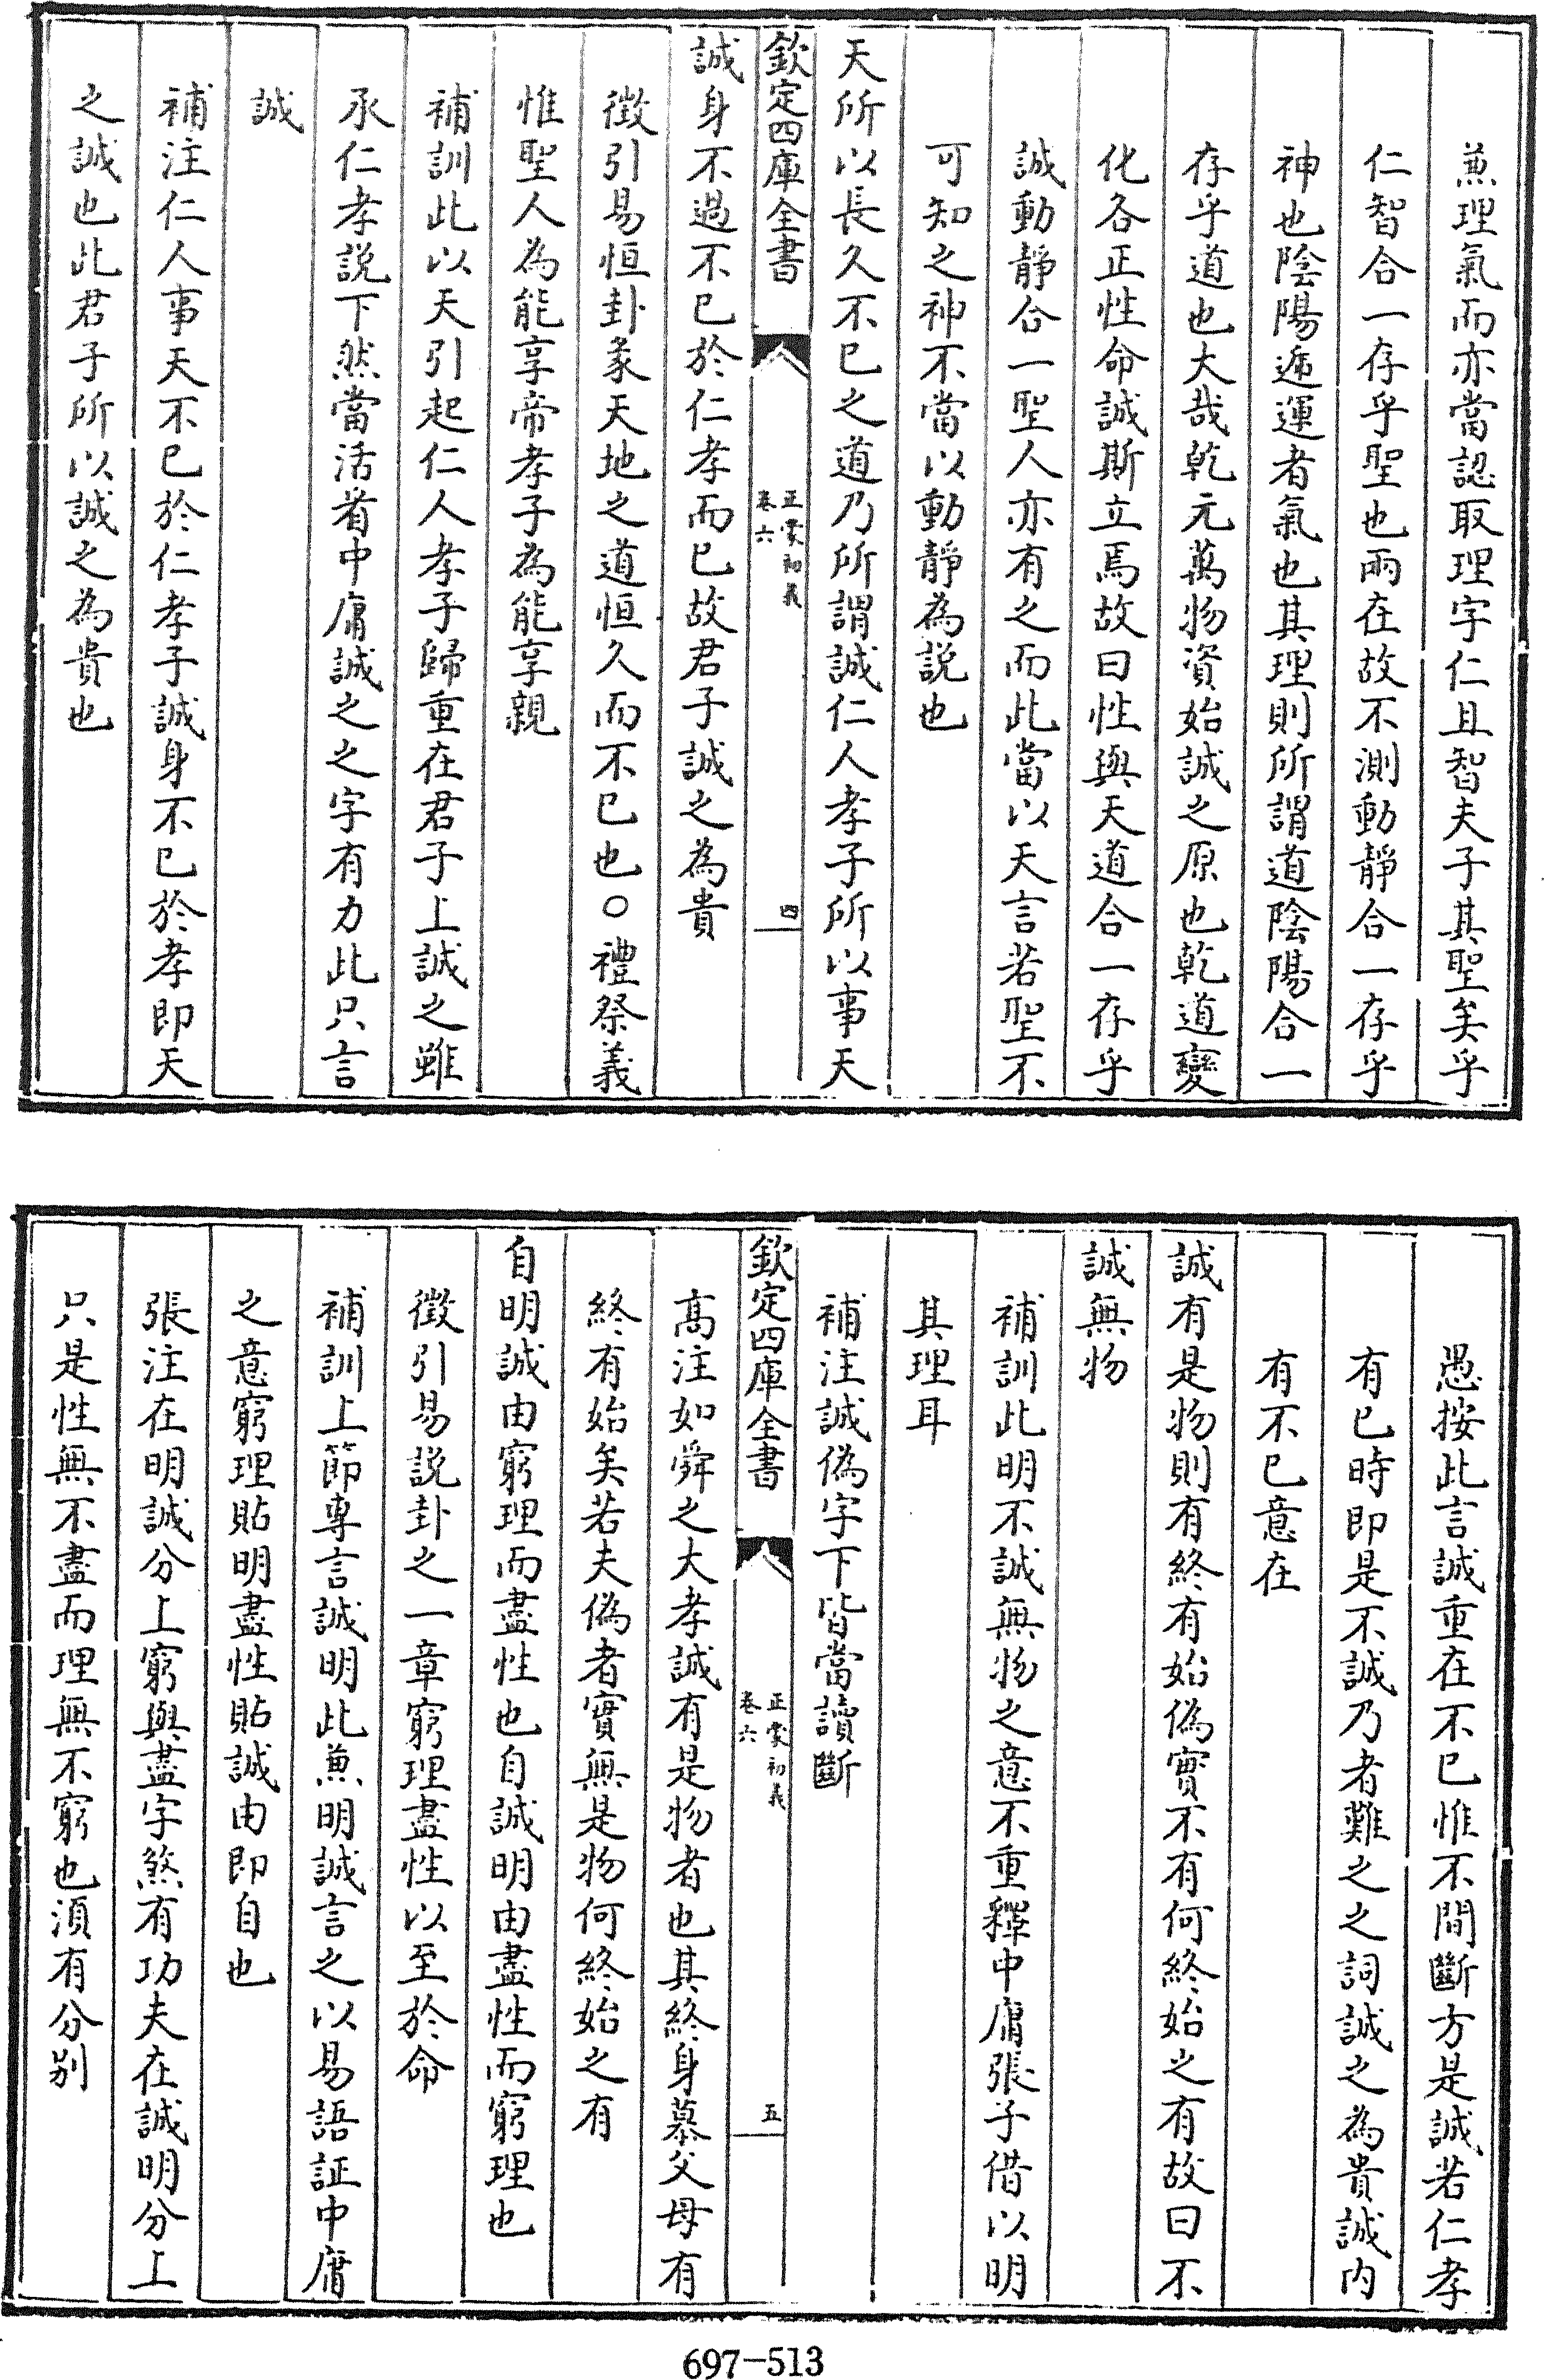 兼理氣而亦當認取理字仁且智夫子其聖矣乎
仁智合一存乎聖也兩在故不測動靜合一存乎
神也陰陽遞運者氣也其理則所謂道陰陽合一
存乎道也大哉乾元萬物資始誠之原也乾道變
化各正性命誠斯立焉故曰性與天道合一存乎
誠動靜合一聖人亦有之而此當以天言若聖不
可知之神不當以動靜為説也
天所以長久不已之道乃所謂誠仁人孝子所以事天
欽定四庫全書
正蒙初義
卷六
四
誠身不過不已於仁孝而已故君子誠之為貴
徴引易恒卦彖天地之道恒久而不已也○禮祭義
惟聖人為能享帝孝子為能享親
補訓此以天引起仁人孝子歸重在君子上誠之雖
承仁孝説下然當活看中庸誠之之字有力此只言
誠
補注仁人事天不已於仁孝子誠身不已於孝即天
之誠也此君子所以誠之為貴也
愚按此言誠重在不已惟不間斷方是誠若仁孝
有已時即是不誠乃者難之之詞誠之為貴誠内
有不已意在
誠有是物則有終有始偽實不有何終始之有故曰不
誠無物
補訓此明不誠無物之意不重釋中庸張子借以明
其理耳
補注誠偽字下皆當讀斷
欽定四庫全書
正蒙初義
卷六
五
髙注如舜之大孝誠有是物者也其終身慕父母有
終有始矣若夫偽者實無是物何終始之有
自明誠由窮理而盡性也自誠明由盡性而窮理也
徴引易説卦之一章窮理盡性以至於命
補訓上節専言誠明此兼明誠言之以易語証中庸
之意窮理貼明盡性貼誠由即自也
張注在明誠分上窮與盡字煞有功夫在誠明分上
只是性無不盡而理無不窮也湏有分别
697-513